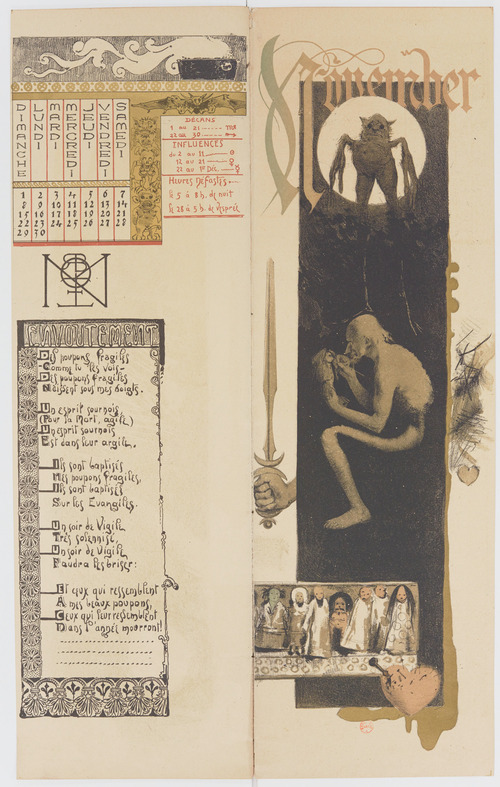 DIMANCHE
LUNDI
MARDI
MERCREDI
JEUDI
VENDREDI
SAMEDI
1 2 3 4 5 6 7
8 9 10 11 12 13 14
15 16 17 18 19 20 21
22 23 24 25 26 27 28
29 30
DÉCANS
1 au 21
22 au 30
INFLUENCES
du 2 au 11
12 au 21
22 au 1er Déc.
Heures Néfastes.
le 5 à 8 h. de nuit
le 28 à 5 h. de vesprée
ENVOUTEMENT
Des poupons fragiles
-Comme tu les vois-
Des poupons fragiles
Naissent sous mes doigts.
Un esprit sournois
(Pour la Mort, agile)
Un esprit sournois
Est dans leur argile.
Ils sont baptisés
Mes poupons fragiles,
Ils sont baptisés
Sur les Evangiles.
Un soir de Vigile
Très solennisé,
Un soir de Vigile
Faudra les briser:
Et ceux qui ressemblent
A mes beaux poupons,
Ceux qui leur ressemblent
Dans l'année mourront!
November